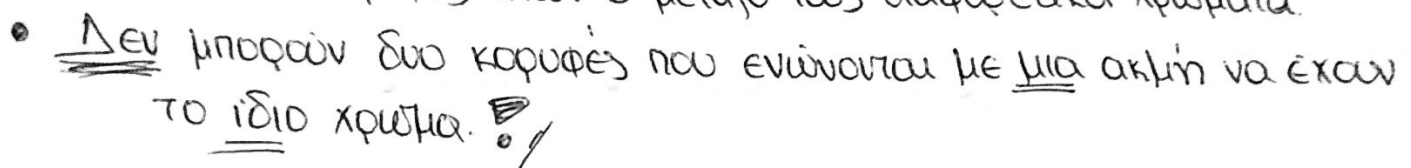 μεταξύ τους διαφορετικά χρώματα.
• Δεν μπορούν δυο κορυφές που ενώνονται με μια ακμή να έχουν
το ίδιο χρώμα. !